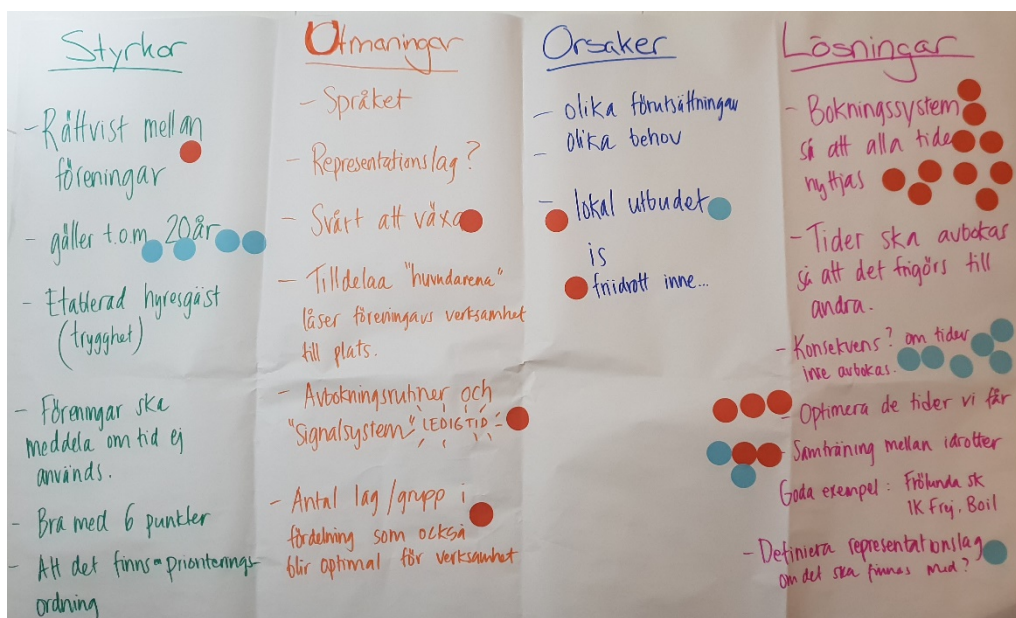 Styrkor
- Rättvist mellan
föreningar
- gäller t.o.m 20år
- Etablerad hyresgäst
(trygghet)
- Föreningar ska
meddela om tid ej
används.
- Bra med 6 punkter
- Att det finns en prioriterings-
ordning
Utmaningar
- Språket
- Representationslag?
- Svårt att växa
- Tilldelaa "huvudarena"
låser föreningars verksamhet
till plats.
- Avbokningsrutiner och
"Signalsystem" LEDIG TID -
- Antal lag/grupp i
fördelning som också
blir optimal för verksamhet
Orsaker
- olika förutsättningar
- olika behov
- lokal utbudet
is
friidrott inne...
Lösningar
- Bokningssystem
så att alla tider
nyttjas
- Tider ska avbokas
så att det frigörs till
andra.
- Konsekvens? om tider
inte avbokas.
- Optimera de tider vi får
- Samträning mellan idrotter
Goda exempel: Frölunda sk
IK Frej, Boil
- Definiera representationslag
om det ska finnas med?